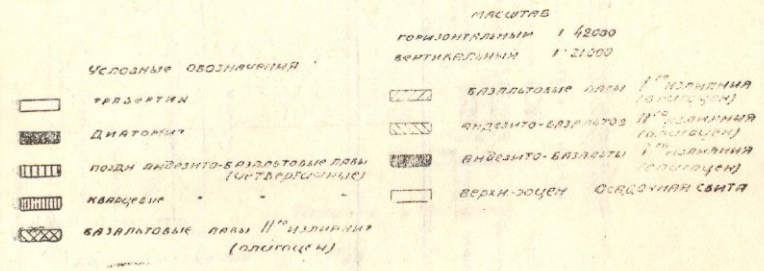 МАСШТАБ
ГОРИЗОНТАЛЬНЫЙ 1:42000
ВЕРТИКАЛЬНЫЙ 1:21000
УСЛОВНЫЕ ОБОЗНАЧЕНИЯ
ТРАВЕРТИН
ДИАТОМИТ
ПОЗДН АНДЕЗИТО-БАЗАЛЬТОВЫЕ ЛАВЫ
(ЧЕТВЕРТИЧНЫЕ)
КВАРЦЕВЫЕ " "
БАЗАЛЬТОВЫЕ ЛАВЫ II го ИЗЛИЯНИЯ
(ОЛИГОЦЕН)
БАЗАЛЬТОВЫЕ ЛАВЫ I го ИЗЛИЯНИЯ
(ОЛИГОЦЕН)
АНДЕЗИТО-БАЗАЛЬТОВ II го ИЗЛИЯНИЯ
(ОЛИГОЦЕН)
АНДЕЗИТО-БАЗАЛЬТЫ I го ИЗЛИЯНИЯ
(ОЛИГОЦЕН)
ВЕРХН-ЭОЦЕН ОСАДОЧНАЯ СВИТА